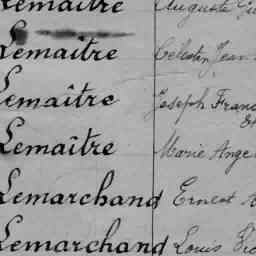 Lemaître Auguste
Lemaître Célestin Jean
Lemaître Joseph Franc
Lemaître Marie Ange
Lemarchand Ernest
Lemarchand Louis Vic